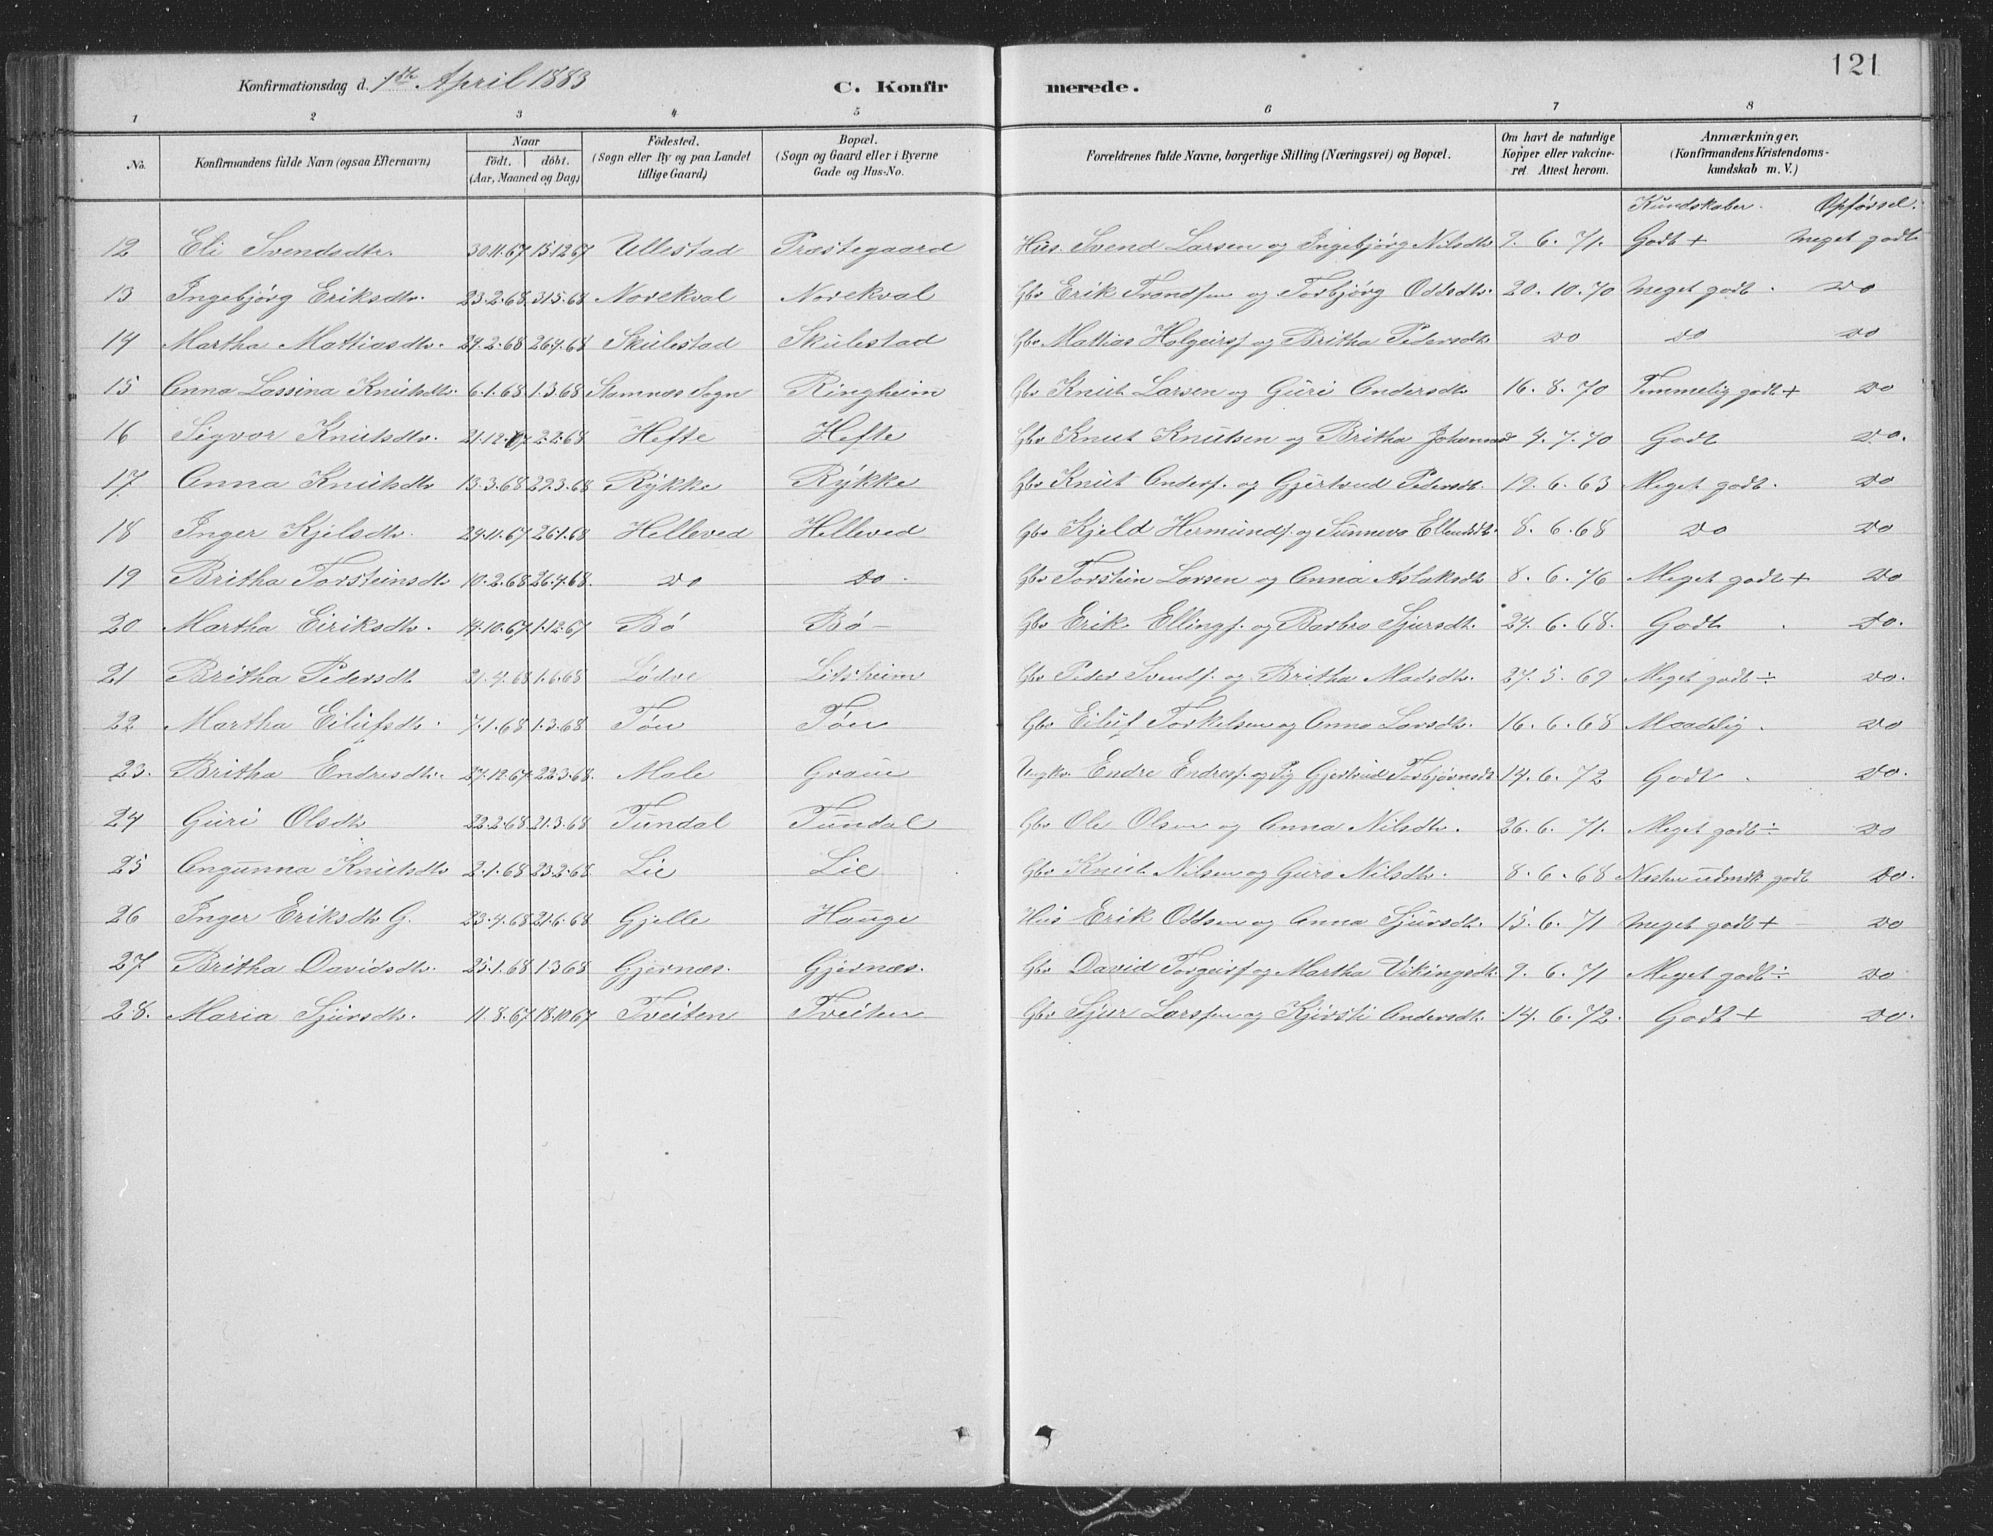 121
Konfirmationsdag d. 1ste April 1883 C. Konfir merede.
1 2 3 4 5 6 7 8
No. Konfirmandens fulde Navn (ogsaa Efternavn) Naar født. døbt. (Aar, Maaned og Dag) Födested. (Sogn eller By og paa Landet tillige Gaard) Bopæl. (Sogn og Gaard eller i Byerne Gade og Hus-No. Forældrenes fulde Navne, borgerlige Stilling (Næringsvei) og Bopæl. Om havt de naturlige Kopper eller vakcineret Attest herom. Anmærkninger. (Konfirmandens Kristendomskundskab m. V.)
Kundskaber. Opførsel.
12 Eli Svendsdtr. 30.11.67 15.12.67 Ullestad Præstegaard Hus. Svend Larsen og Ingebjørg Nilsdtr 9. 6. 71. Godt + Meget godt
13 Ingebjørg Eriksdtr. 23.2.68 31.5.68 Norekval Norekval Gbr Erik Trondsen og Torbjørg Oddsdtr 20. 10. 70 Meget godt. Do
14 Martha Mattiasdtr. 29.2.68 26.4.68 Skulestad Skulestad Gbr Mattias Holgeirs. og Britha Pedersdtr do do Do
15 Anna Lassina Knutsdtr. 6.1.68 1.3.68 Stamnes Sogn Ringheim Gbr Knut Larsen og Guri Andersdtr 16. 8. 70 Temmelig godt + Do
16 Sigvor Knutsdtr. 21.12.67 2.2.68 Hefte Hefte Gbr Knut Knutsen og Britha 4. 7. 70 Godt Do.
17. Anna Knutsdtr 13.3.68 22.3.68 Rykke Rykke Gbr Knut Anders. og Gjertrud Pedersdtr. 19. 6. 63 Meget godt. Do
18 Inger Kjelsdtr. 24.11.67 26.1.68 Helleved Helleved Gbr Kjeld Hermunds. og Sunneva 8. 6. 68 Do Do
19 Britha Torsteinsdtr 10.2.68 26.4.68. Do Do. Gbr Torstein Larsen og Anna Aslaksdtr 8. 6. 76 Meget godt + Do
20 Martha Eiriksdtr. 14.10.67 1.12.67 Bø Bø Gbr Erik Ellings. og Barbro Sjursdtr. 24. 6. 68. Godt. Do.
21 Britha Pedersdt 21.4.68 1.6.68 Lødve Gbr Peder Svends. og Britha Madsdtr. 27. 5. 69 Meget godt ÷ Do.
22 Martha Eilufsdtr. 7.1.68 1.3.68 Tøn Tøn Gbr Eiluf Torkelsen og Anna Larsdtr. 16. 6. 68 Maadelig. Do
23. Britha Endresdtr. 27.12.67. 22.3.68. Male Graue Ungkr Endre Endres. og Pig Gjertrud Torbjørnsdt 14. 6. 72 Godt. Do.
24 Guri Olsdtr 22.2.68 21.3.68 Tundal Tundal Gbr Ole Olsen og Anna Nilsdtr. 26. 6. 71. Meget godt ÷ Do
25 Angunna Knutsdtr 2.1.68 23.2.68 Lie Lie Gbr Knut Nilsen og Guro Nilsdtr. 8. 6. 68 Næsten udmrk godt Do.
26 Inger Eriksdtr G. 23.4.68 21.6.68 Gjelle Hauge Hus Erik Oddsen og Anna Sjursdtr. 15. 6. 71 Meget godt + Do
27 Britha Davidsdtr. 25.1.68 1.3.68 Gjernæs. Gjernæs. Gbr David Torgeirs. og Martha Vikingsdtr 9. 6. 71 Meget godt ÷ Do
28. Maria Sjursdtr. 11.8.67 18.10.67 Tveiten Tveiten Gbr Sjur Larssen og Kjersti Andersdtr. 14. 6. 72. Godt + Do.